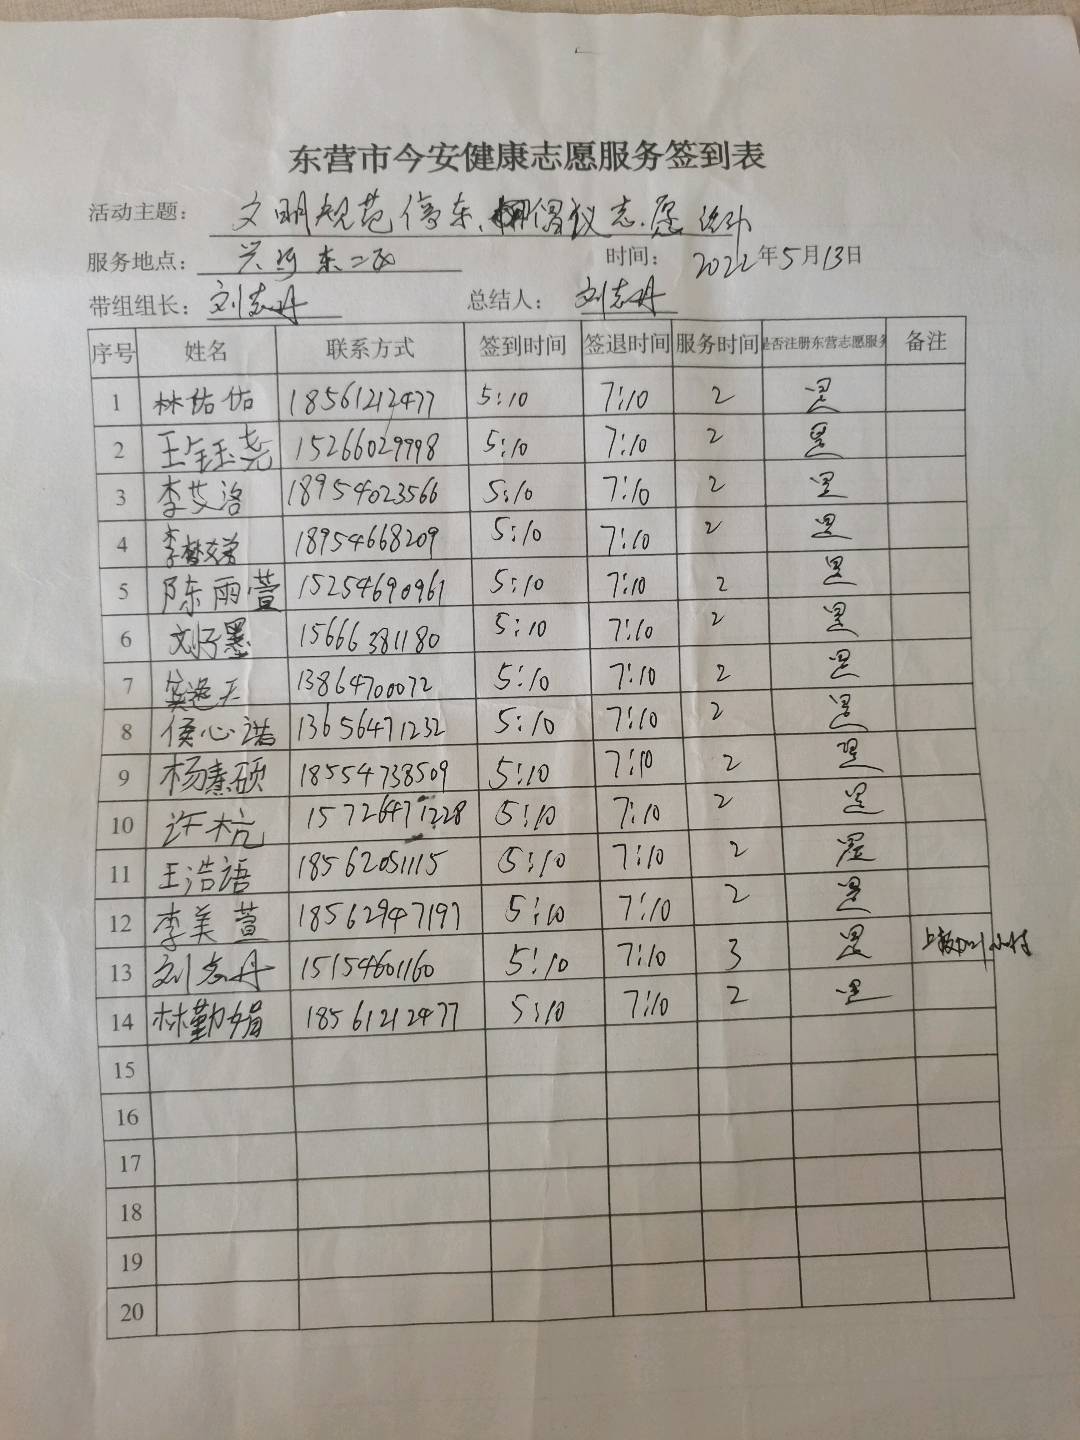 东营市今安健康志愿服务签到表
活动主题： 文明规范停车、倡议志愿
服务地点： 兴河东二 时间： 2022年5月13日
带组组长： 刘志丹 总结人： 刘志丹
序号 姓名 联系方式 签到时间 签退时间 服务时间 是否注册东营志愿服务 备注
1 林佑佑 18561212477 5:10 7:10 2 是
2 王钰尧 15266029998 5:10 7:10 2 是
3 李艾洛 18954023566 5:10 7:10 2 是
4 李 18954668209 5:10 7:10 2 是
5 陈雨萱 15254690961 5:10 7:10 2 是
6 刘子墨 15666381180 5:10 7:10 2 是
7 13864700072 5:10 7:10 2 是
8 侯心诺 13656471232 5:10 7:10 2 是
9 杨熹硕 18554738509 5:10 7:10 2 是
10 许杭 15726471228 5:10 7:10 2 是
11 王浩语 18562051115 5:10 7:10 2 是
12 李美萱 18562947197 5:10 7:10 2 是
13 刘志丹 15154601160 5:10 7:10 3 是
14 林勤娟 18561212477 5:10 7:10 2 是
15
16
17
18
19
20